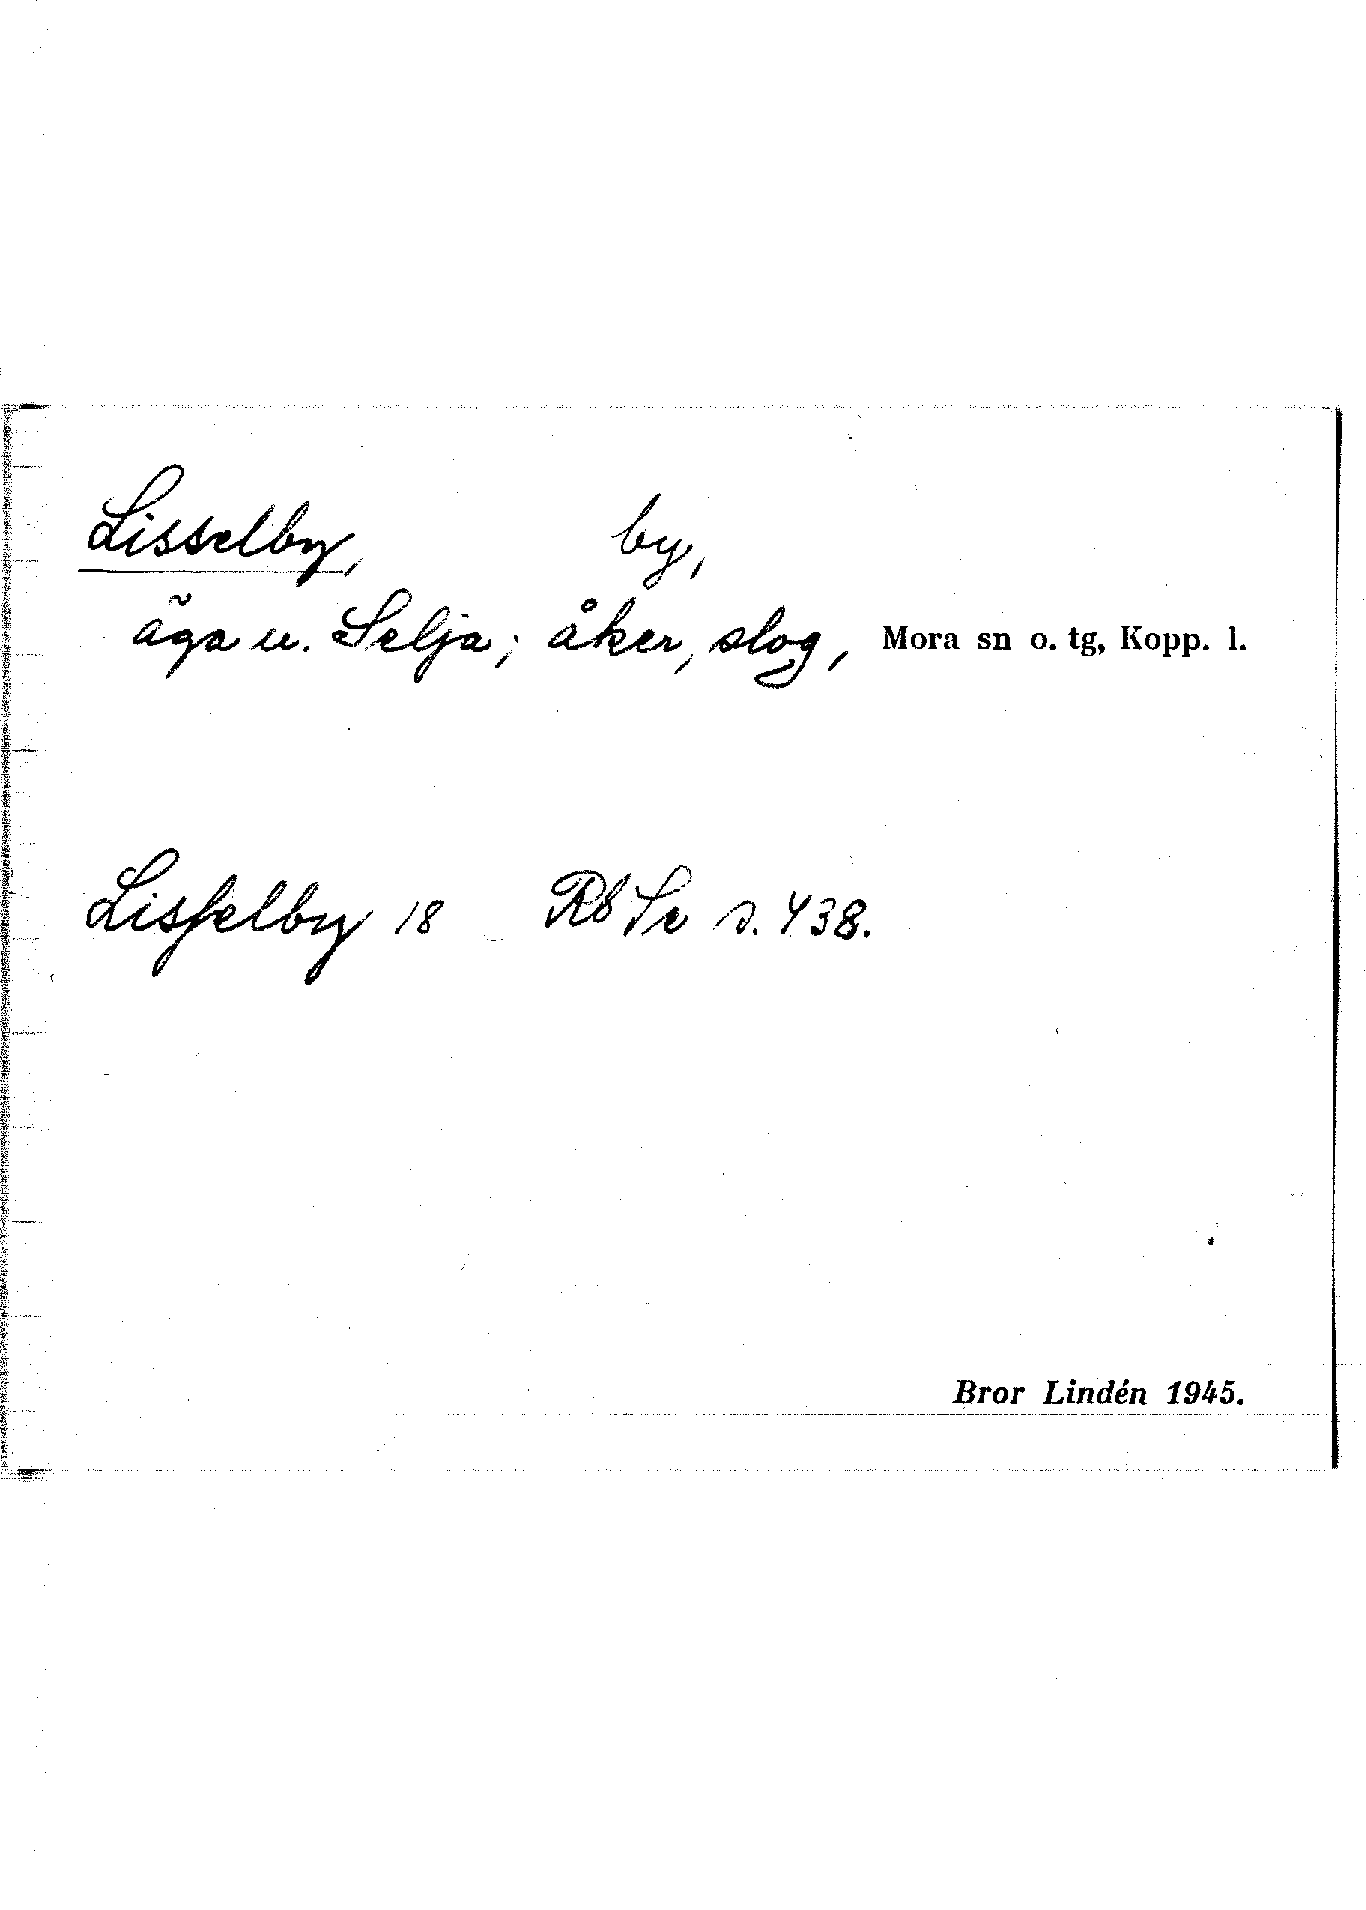 Lisselby, by,
äga u. Selja; åker, slog, Mora sn o. tg, Kopp. l.
Lisselby 18 Rb Se s. 438.
Bror Lindén 1945.